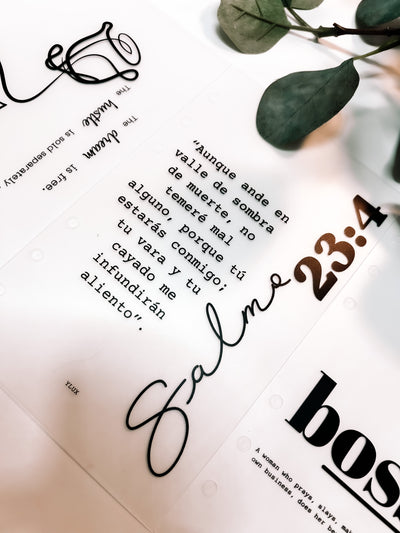 The
hustle
is sold separately
The
dream
is free.
"Aunque ande en
valle de sombra
de muerte, no
temeré mal
alguno, porque tú
estarás conmigo;
tu vara y tu
cayado me
infundirán
aliento".
Salmo
23:4
YLUX
A woman who prays, slays,
own business, does her